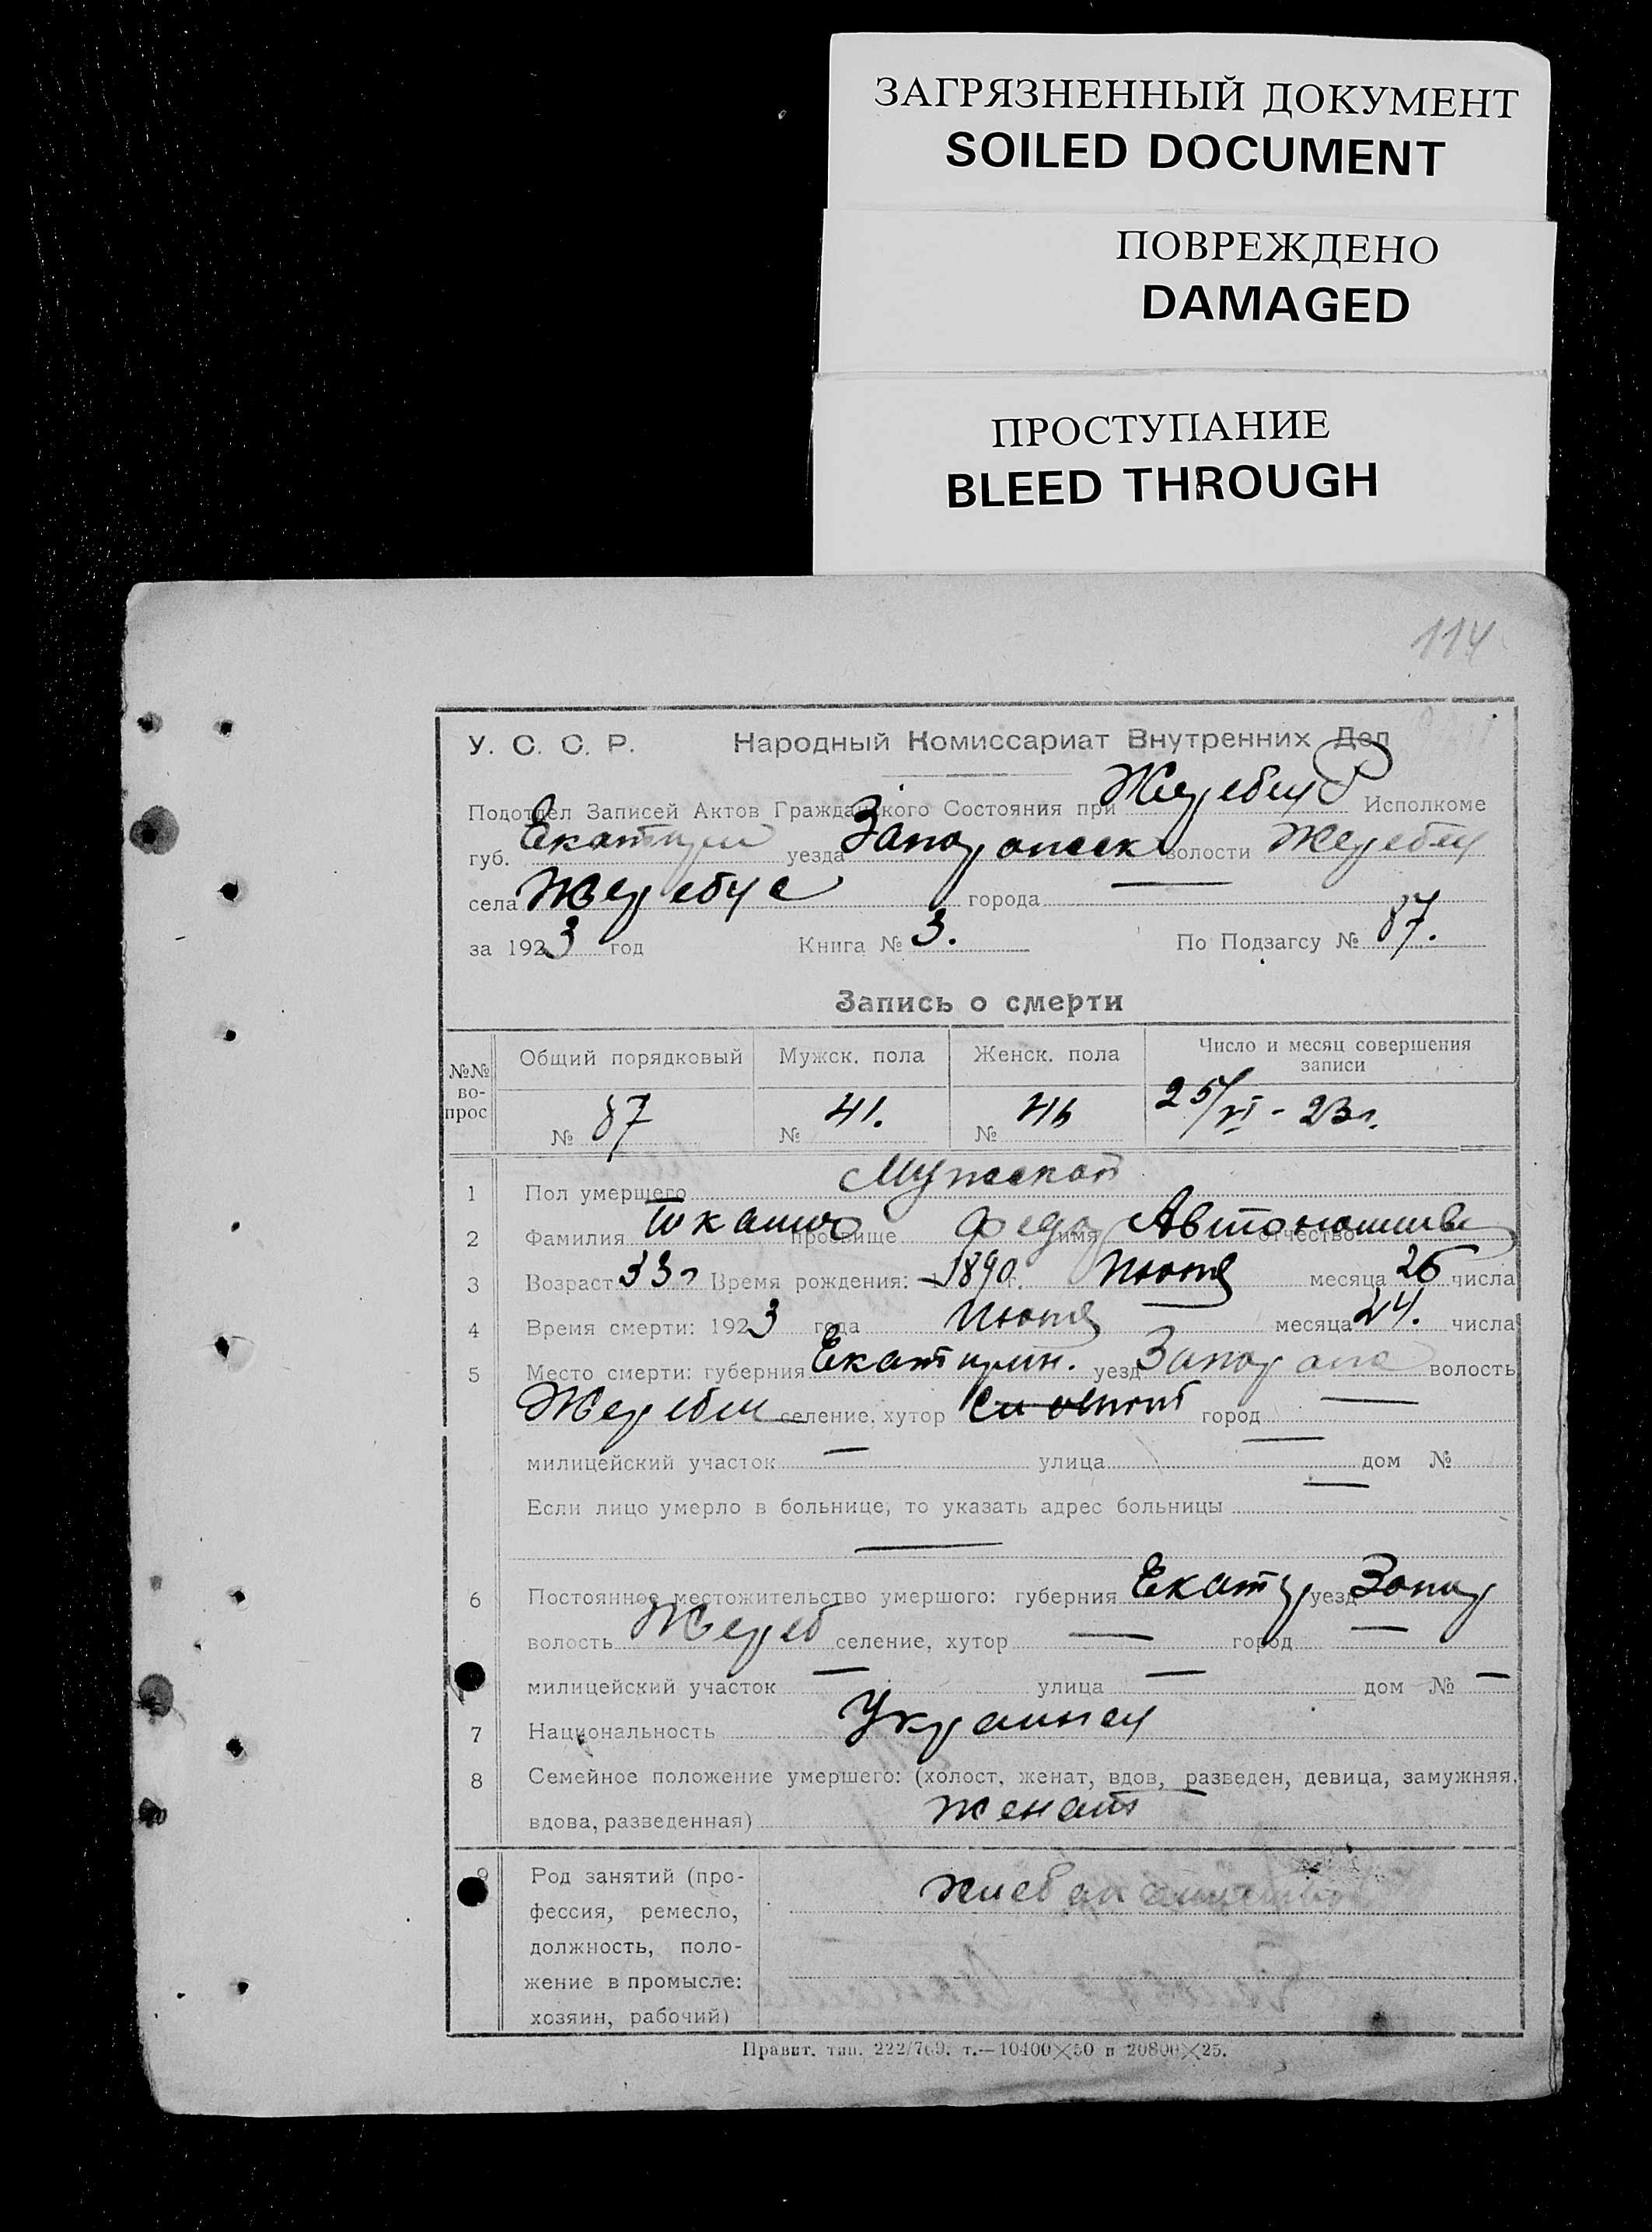 ЗАГРЯЗНЕННЫЙ ДОКУМЕНТ
SOILED DOCUMENT
ПОВРЕЖДЕНО
DAMAGED
ПРОСТУПАНИЕ
BLEED THROUGH
114
У. С. С. Р. Народный Комиссариат Внутренних Дел
Подотдел Записей Актов Гражданского Состояния при Исполкоме
губ. Екатер уезда Запорожск волости Жеребец
села Жеребце города —
за 1923 год Книга № 3. По Подзагсу № 87.
Запись о смерти
№№ вопрос Общий порядковый Мужск. пола Женск. пола Число и месяц совершения записи
№ 87 № 41. № 46 25/VI - 23 г.
1 Пол умершего Мужской
2 Фамилия прозвище Федор имя Автономов отчество
3 Возраст 33 г Время рождения: 1890 г. Июня месяца 26 числа
4 Время смерти: 1923 года Июня месяца 24. числа
5 Место смерти: губерния Екатерин. уезд волость
Жеребец селение, хутор город —
милицейский участок — улица — дом № —
Если лицо умерло в больнице, то указать адрес больницы
—
6 Постоянное местожительство умершого: губерния Екатер уезд Запор
волость Жереб селение, хутор — город —
милицейский участок — улица — дом № —
7 Национальность Украинец
8 Семейное положение умершего: (холост, женат, вдов, разведен, девица, замужняя,
вдова, разведенная) женат
9 Род занятий (про- хлебопашество
фессия, ремесло,
должность, поло-
жение в промысле:
хозяин, рабочий)
Правит. тип. 222/769. т.—10400×50 и 20800×25.